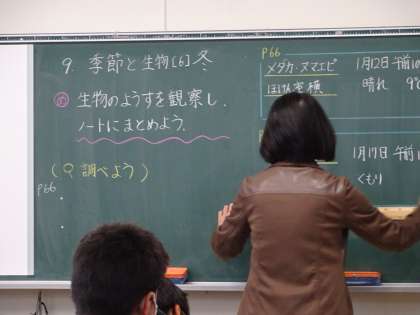 9. 季節と生物[6]冬
め 生物のようすを観察し、
ノートにまとめよう。
(Q 調べよう)
P66
P66
メダカ・ヌマエビ
ほけん室横
1月12日 午前10
晴れ 9℃
1月17日 午前
くもり